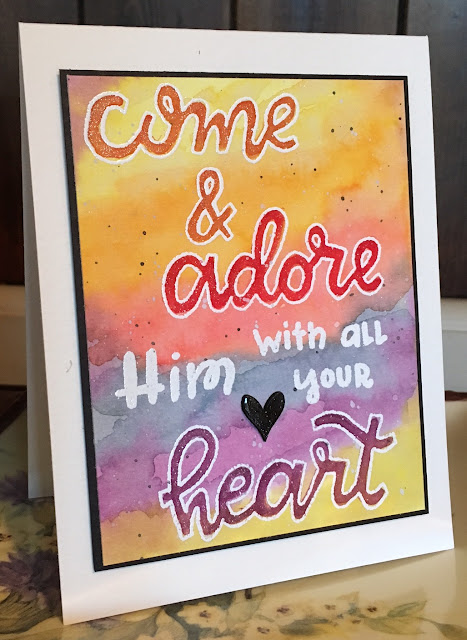 come
&
adore
Him with all
your
heart